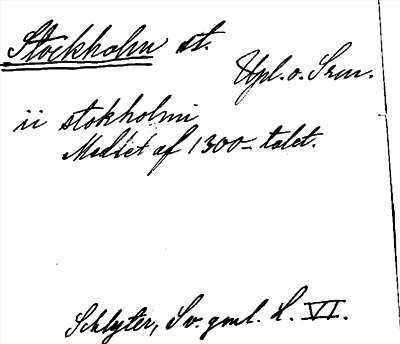 Stockholm st.
Upl. o. Srm.
ii stokholmi
Medlet af 1300-talet.
Schlyter, Sv. gml. L. VI.